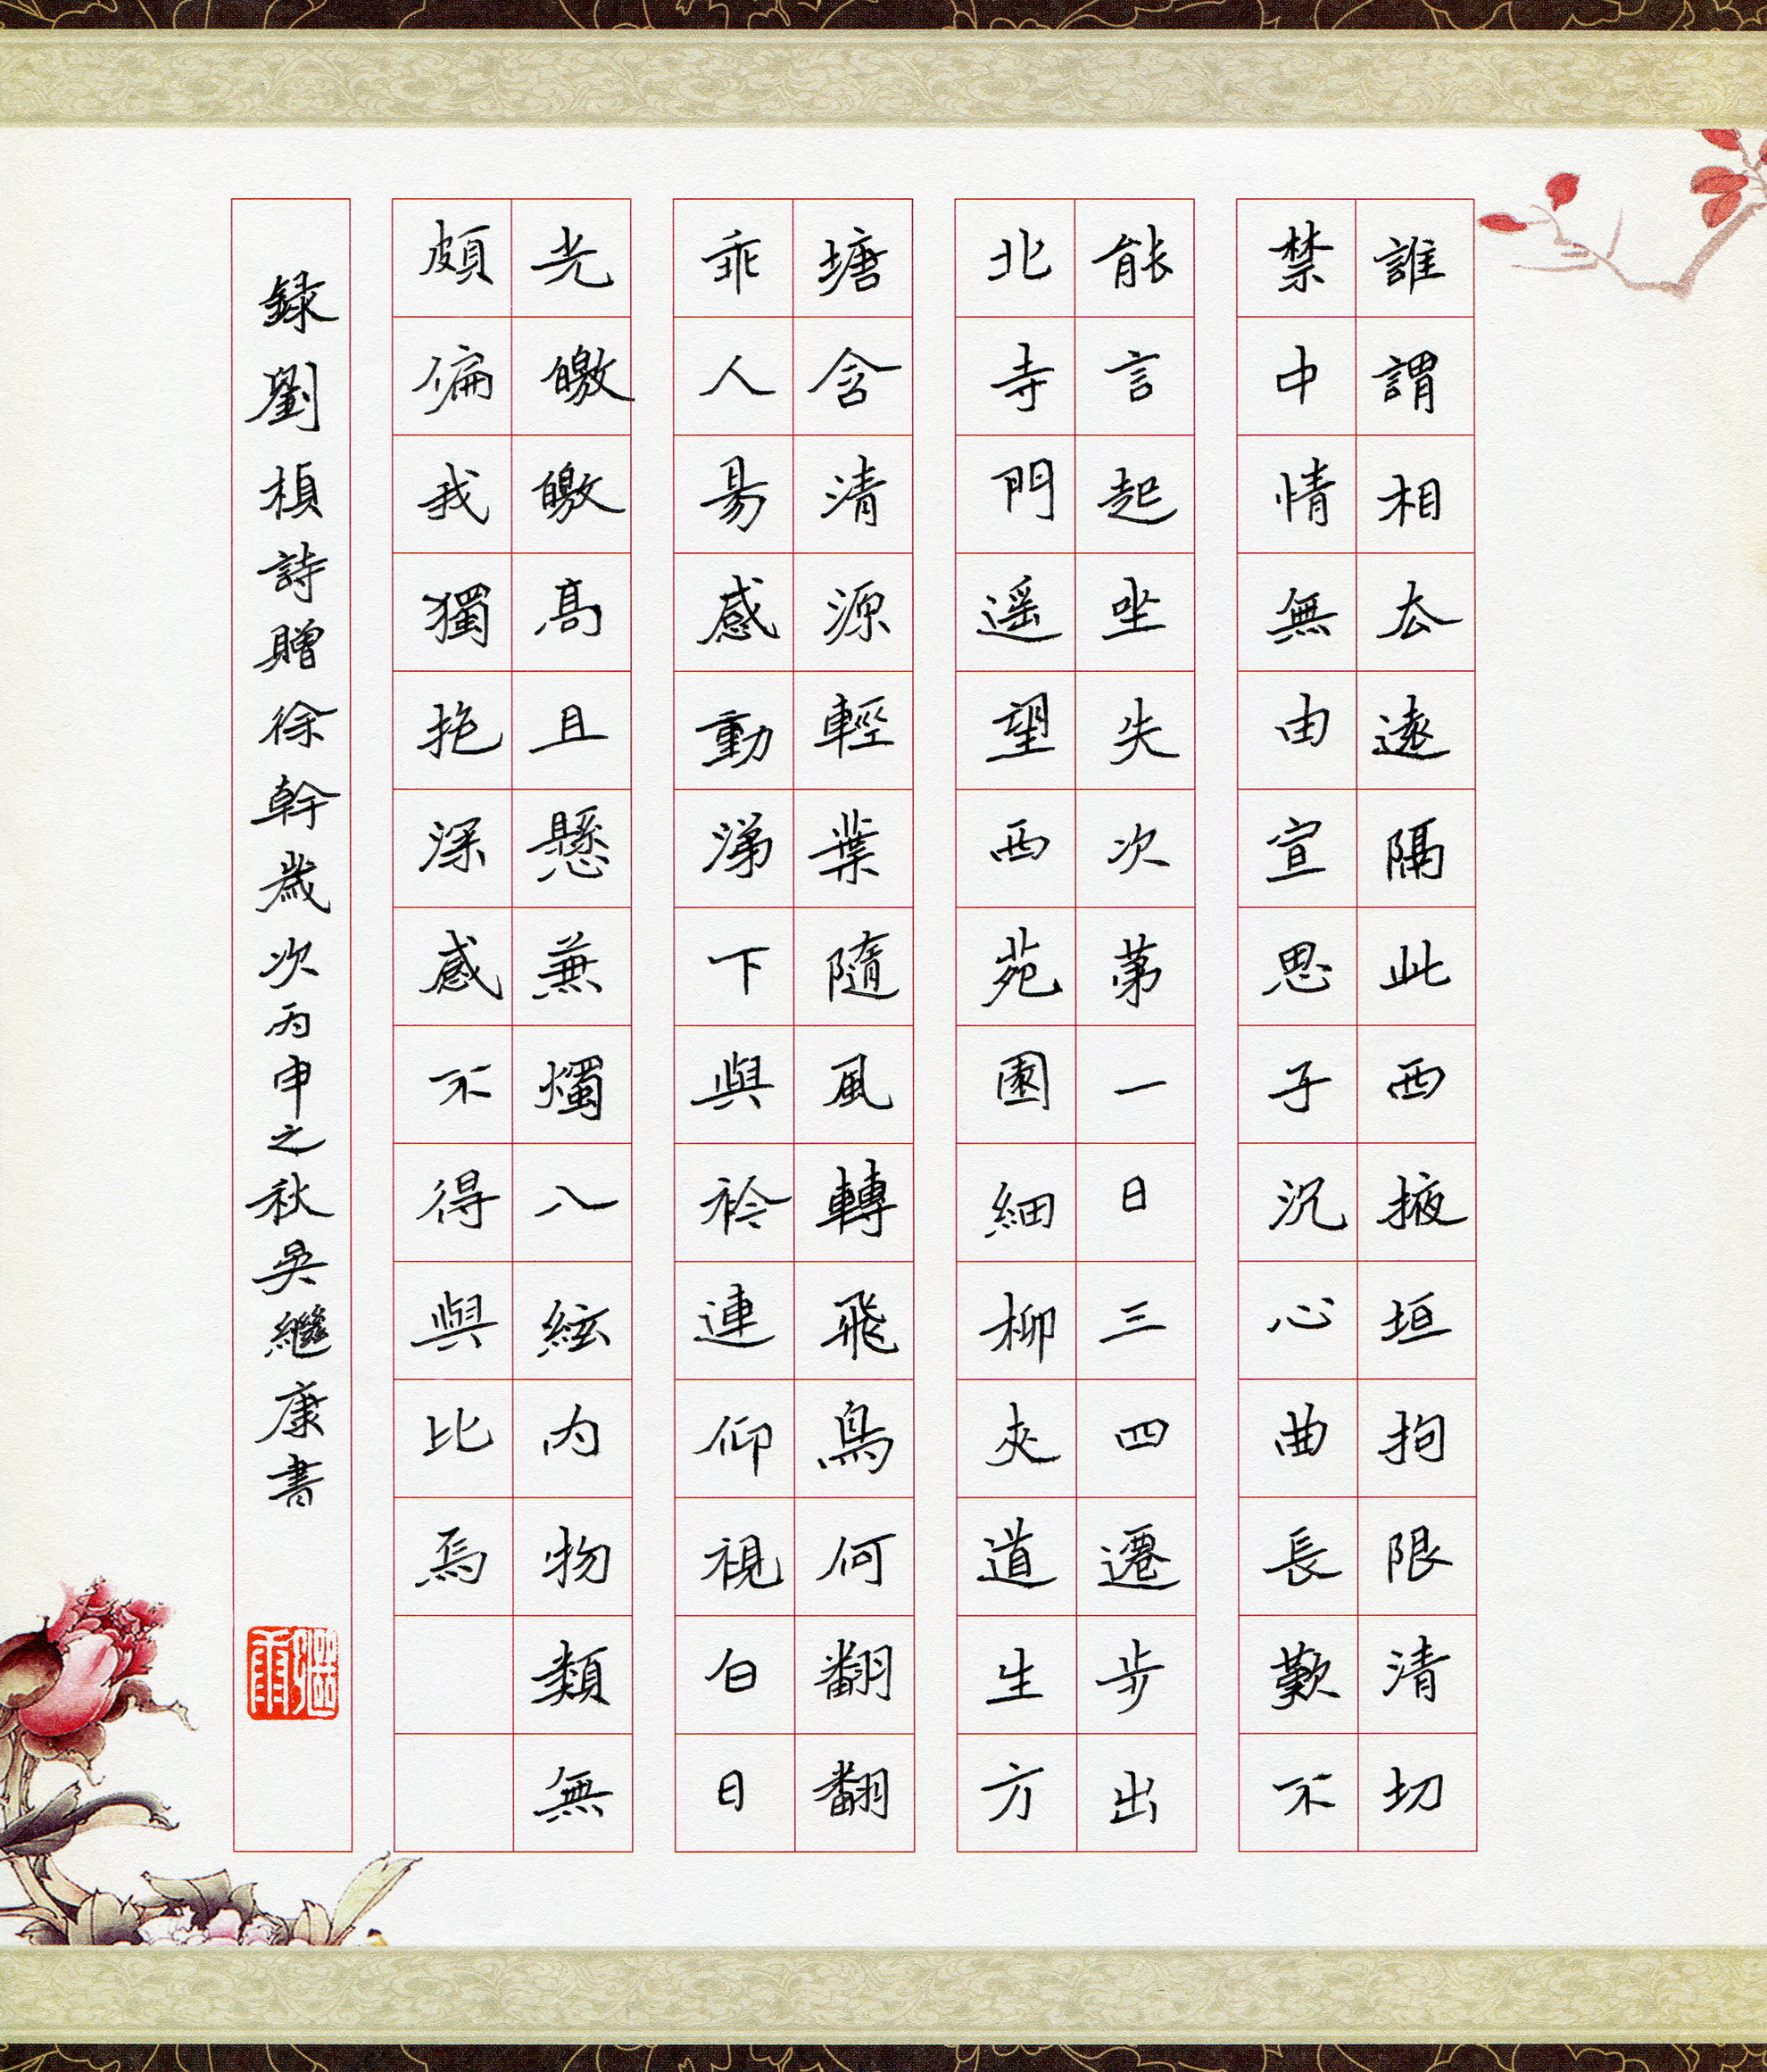 誰謂相去遠隔此西掖垣拘限清切
禁中情無由宣思子沉心曲長歎不
能言起坐失次第一日三四遷步出
北寺門遥望西苑園細柳夾道生方
塘含清源輕葉隨風轉飛鳥何翻翻
乖人易感動涕下與衿連仰視白日
光皦皦高且懸兼燭八紘内物類無
頗偏我獨抱深感不得與比焉
録劉楨詩贈徐幹歲次丙申之秋吳繼康書